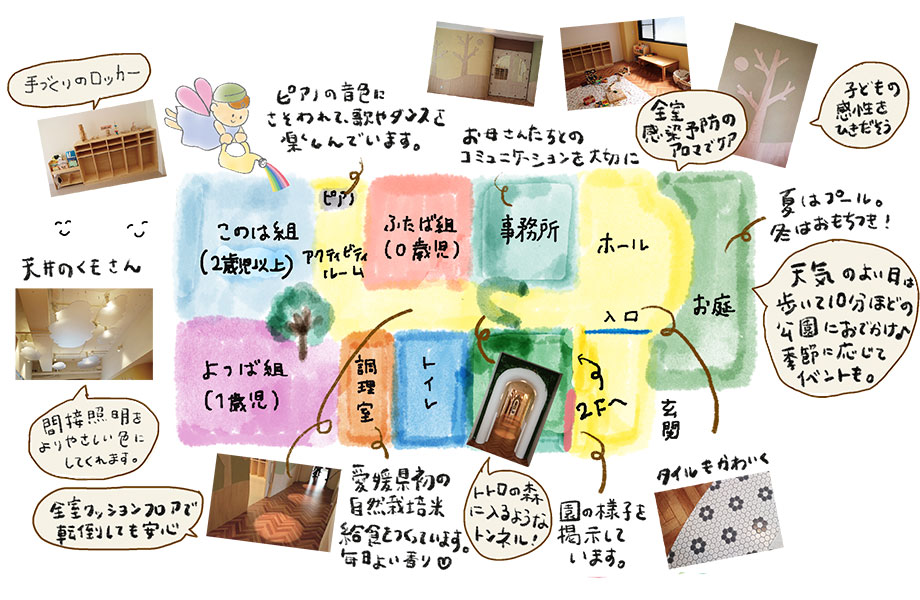 手づくりのロッカー
ピアノの音色に
さそわれて、歌やダンスを
楽しんでいます。
お母さんたちとの
コミュニケーションを大切に
全室
感染予防の
アロマでケア
子どもの
感性を
ひきだそう
天井のくもさん
間接照明を
よりやさしい色に
してくれます。
このは組
(2歳児以上)
ピアノ
アクティビティ
ルーム
ふたば組
(0歳児)
事務所
ホール
お庭
夏はプール。
冬はおもちつき!
天気のよい日は
歩いて10分ほどの
公園におでかけ♪
季節に応じて
イベントも。
よつば組
(1歳児)
調理室
トイレ
入口
2Fへ
玄関
全室クッションフロアで
転倒しても安心
愛媛県初の
自然栽培米
給食をつくっています。
毎日よい香り♡
トトロの森
に入るような
トンネル!
園の様子を
掲示して
います。
タイルもかわいく